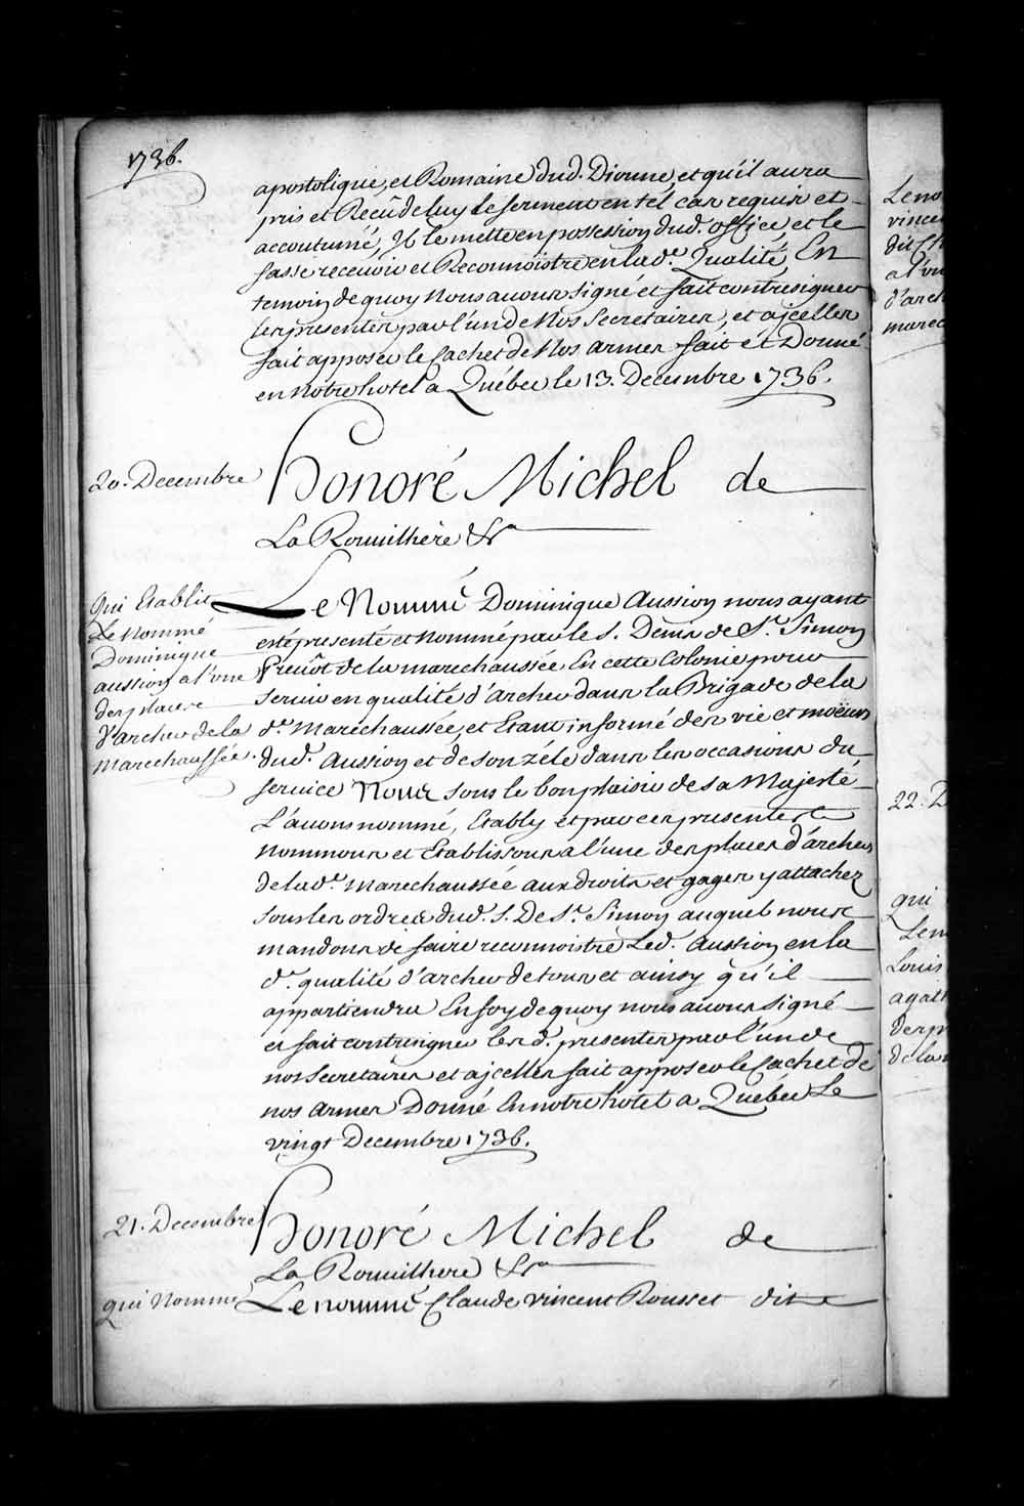 1736.
apostolique, et Romaine dud. Dionne, et qu'il aura
pris et Recû de luy le serment en tél cas requis et
accoutumé, Il le mette en possession dud. office, et le
fasse recevoir et Reconnoistre en lad.e Qualité, En
temoin de quoy Nous avons signé et fait contresigner
les presentes par l'un de Nos Secretaires, et a jcelles
fait apposer le Cachet de Nos armes fait ét Donné
en notre hotel a Québec le 13. Decembre 1736.
20. Decembre
Honoré Michel de
La Rouvilliere &a
Qui Etablit
Le Nommé
Dominique
aussion a l'une
des places
d'archer de la
Marechaussée.
Le Nommé Dominique Aussion nous ayant
esté presenté et nommé par le S. Denis de St. Simon
Prevôt de la marechaussée En cette Colonie pour
servir en qualité d'archer dans la Brigade de la
d.e Maréchaussée, et Etant informé des vie et moëurs
dud. Aussion et de son zéle dans les occasions du
service Nous sous le bon plaisir de sa Majesté
L'avons nommé, Etably et par ces presentes le
nommons et Etablissons a l'une des places d'archers
de lad.e marechaussée aux droits et gages y attachez
sous les ordres dud. S. De St. Simon auquel nous
mandons de faire reconnoistre Led. Aussion en la
d.e qualité d'archer de tous et ainsy qu'il
appartiendra En foy de quoy nous avons signé
et fait contresigner lesd. presentes par l'un de
nos Secretaires et a jcelles fait apposer le Cachet de
nos armes Donné En notre hotel a Québec Le
vingt Decembre 1736.
21. Decembre
Honoré Michel de
La Rouvilliere &a
qui Nomme
Le nommé Claude vincent Rousset dit
Le no
vince
dit Ch
a l'un
d'arch
marec
22. D
qui
Len
Louis
agath
des p
de la